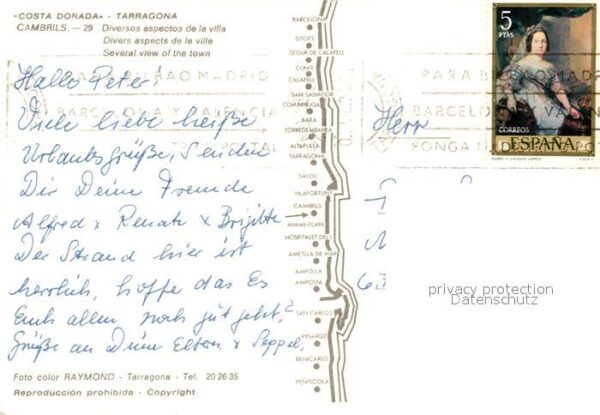 «COSTA DORADA» - TARRAGONA
CAMBRILS. — 29 Diversos aspectos de la villa
Divers aspects de la ville
Several view of the town
Hallo Peter!
Viele liebe heiße,
Urlaubsgrüße, senden
Dir Deine Freunde
Alfred x Renate x Brigitte
Der Strand hier ist
herrlich, hoffe das Es
Euch allen noch gut geht?
Grüße an Deine Eltern x Seppel.
Foto color RAYMOND - Tarragona - Tel. 20 26 35
Reproducción prohibida - Copyright
BARCELONA
SITGES
SEGUR DE CALAFELL
CUNIT
CALAFELL
SAN SALVADOR
COMARRUGA
BARA
TORREDEMBARRA
ALTAFULLA
TARRAGONA
SALOU
VILAFORTUNY
CAMBRILS
MIAMI-PLAYA
HOSPITALET DEL I.
AMETLLA DE MAR
AMPOLLA
AMPOSTA
SAN CARLOS
VINAROZ
BENICARLO
PEÑISCOLA
PARA BILBAO MADRID
BARCELONA Y VALENCIA
POSTAL
Herr
PARA BILBAO MADR
BARCELONA Y VALEN
PONGA
5
PTAS
CORREOS
ESPAÑA
privacy protection
Datenschutz